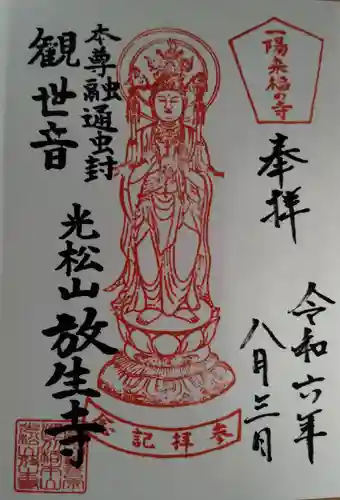 一陽来福の寺
奉拝
令和六年
八月三日
本尊融通虫封
観世音
光松山放生寺
参拝記念